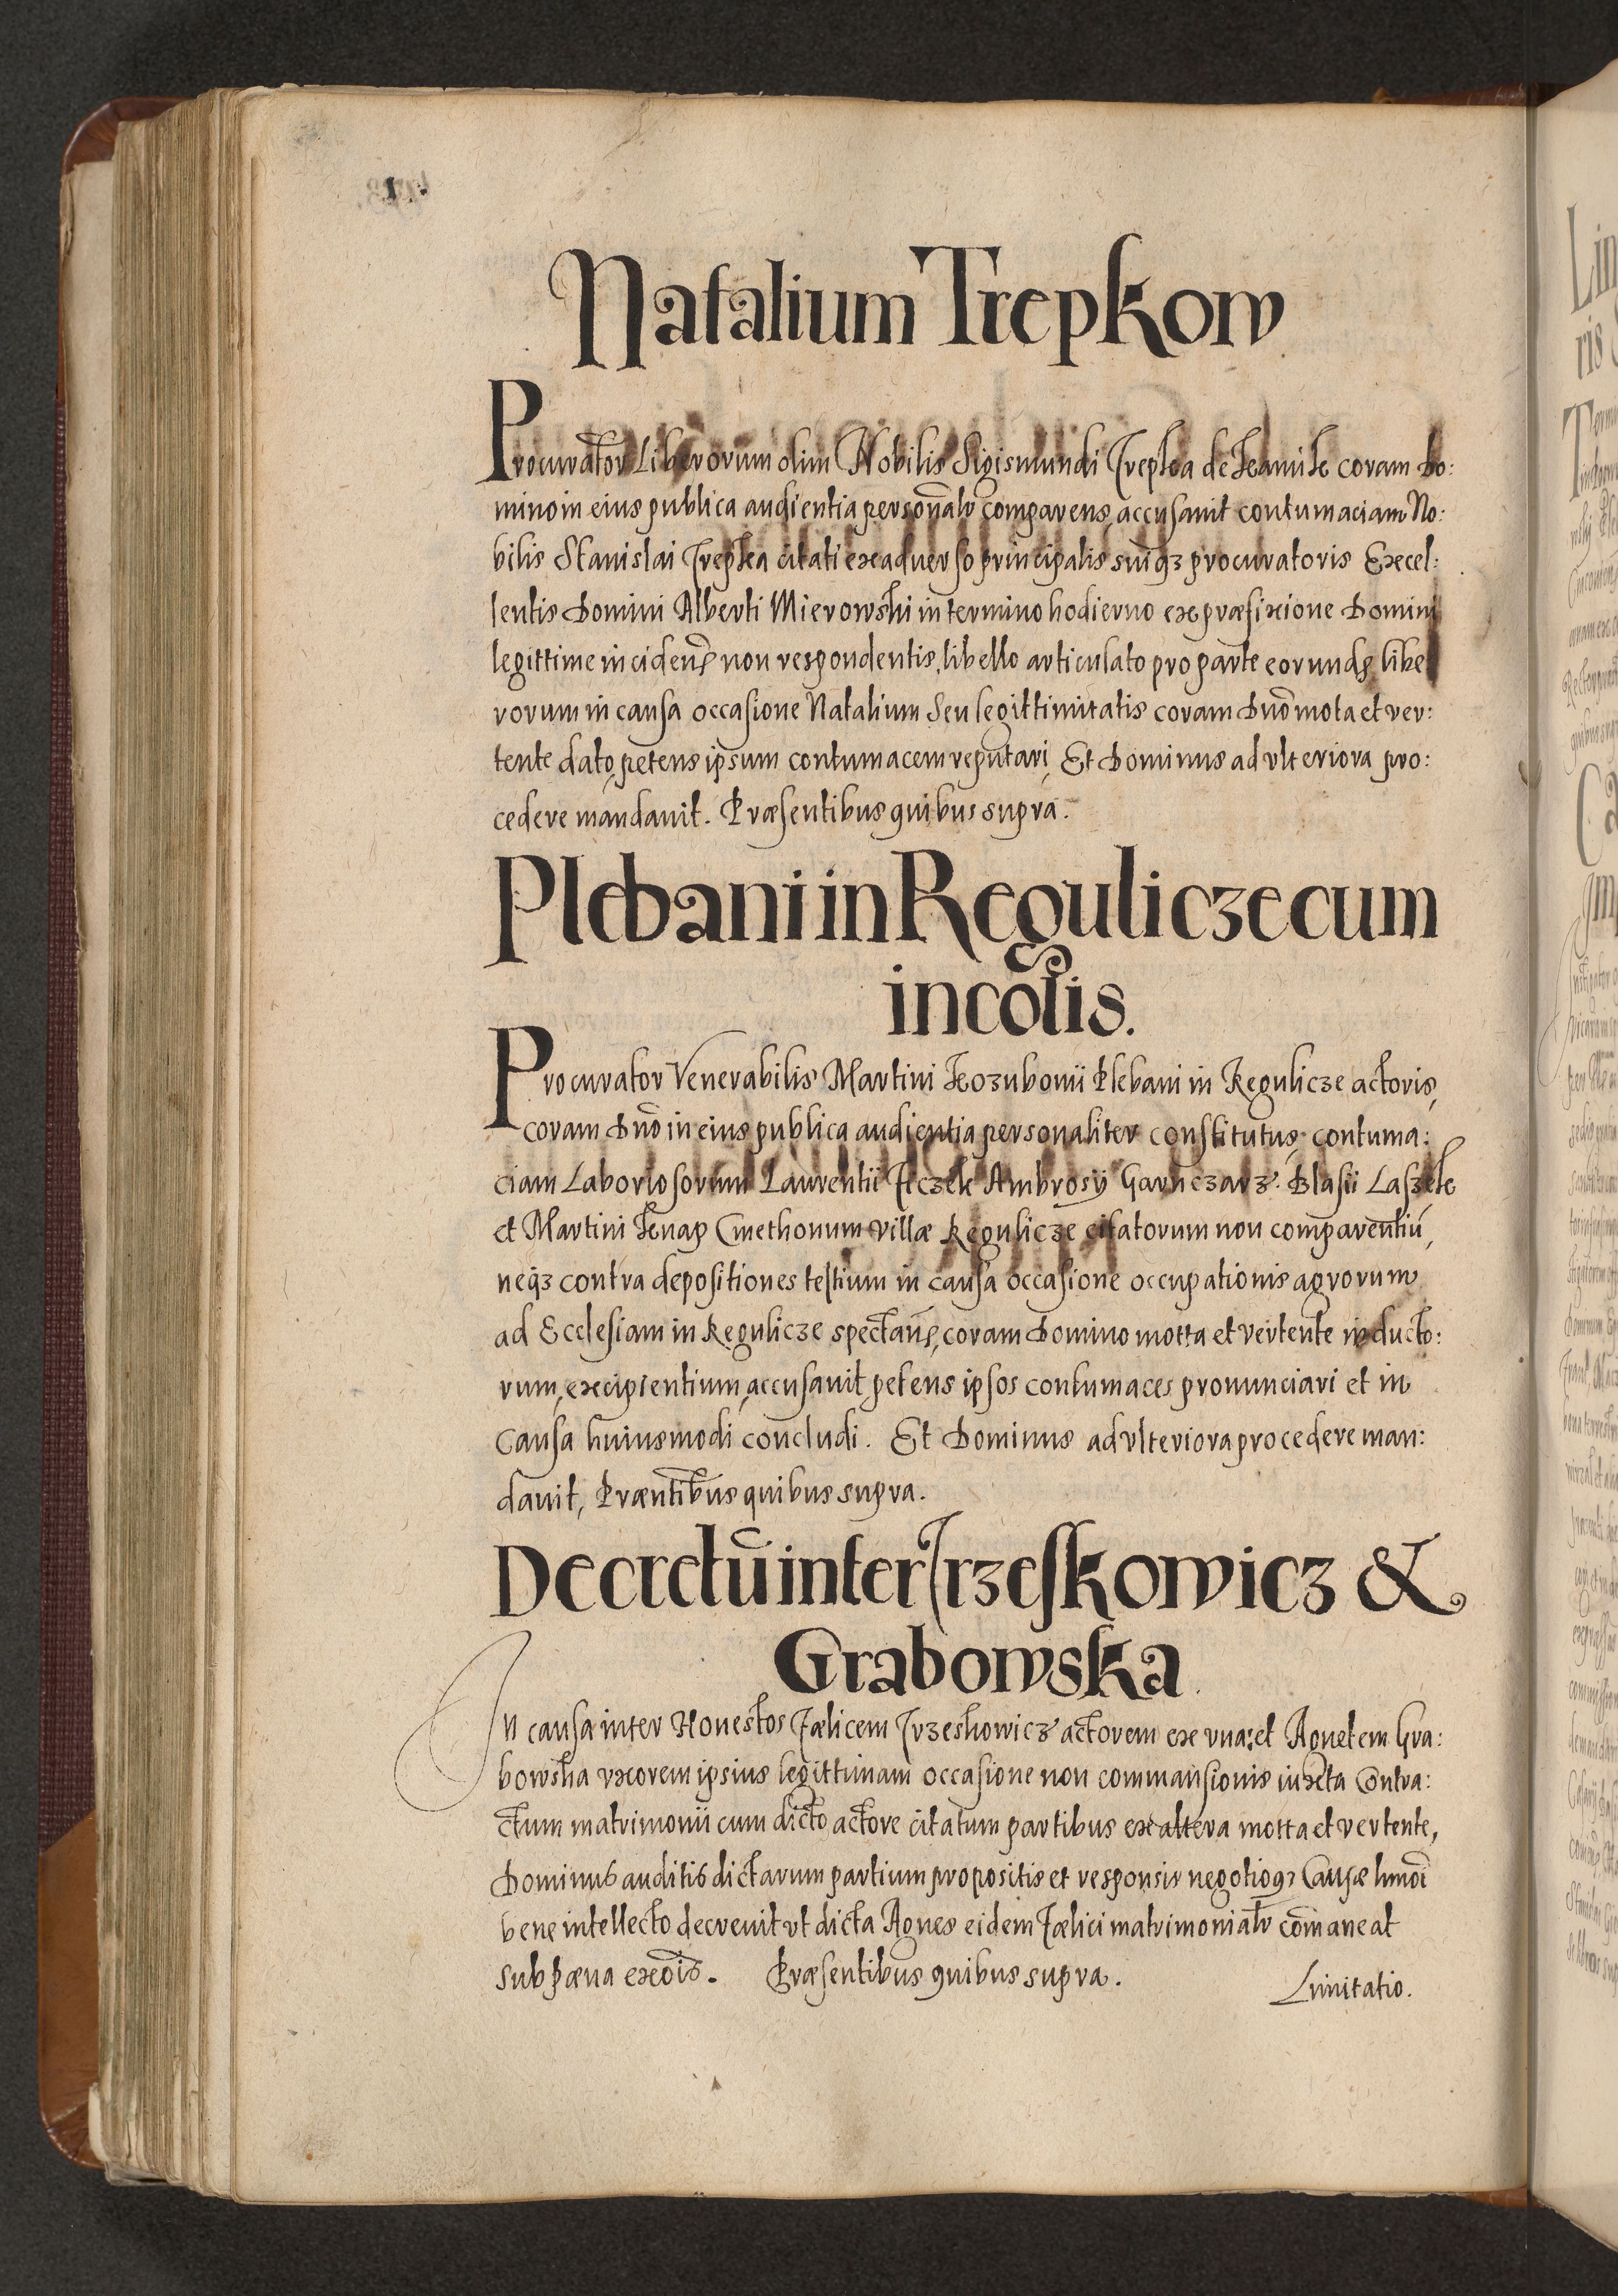 Natalium Trepkow
Procurator Liberorum olim Nobilis Sigismundi Trepka de coram Do:
mino in eius publica audientia personalr comparens, accusauit contumaciam No:
bilis Stanislai Trepka citati ex aduerso principalis suiqȝ procuratoris Excel:
lentis Domini Alberti Mierowski in termino hodierno ex præfixione Domini
legittime inciden non respondentis, libello articulato pro parte eorund libe
rorum in causa occasione Natalium seu legittimitatis coram Dno mota et ver:
tente dato, petens ipsum contumacem reputari, Et Dominus ad vlteriora pro:
cedere mandauit. Præsentibus quibus supra.
Plebani in Reguliczecum
incolis.
Procurator Venerabilis Martini Kozubonii Plebani in Regulicze actoris,
coram Dno in eius publica audientia personaliter constitutus, contuma:
ciam Laboriosorum Laurentii Ambrosÿ Garnczarz. Blasii Laszek
et Martini Knap Cmethonum villæ Regulicze citatorum non comparentiū,
neqȝ contra depositiones testium in causa occasione occupationis agrorum
ad Ecclesiam in Regulicze spectan, coram Domino motta et vertente inducto:
rum, excipientium, accusauit, petens ipsos contumaces pronunciari et in
Causa huiusmodi concludi. Et Dominus ad vlteriora procedere man:
dauit, Præntibus quibus supra.
Decretū inter Trzeskowicz &
Grabowska.
In causa inter Honestos Fælicem Trzeskowicz actorem ex vna: et Agnetem Gra:
bowska vxorem ipsius legittimam occasione non commansionis iuxta Contra:
ctum matrimonii cum dicto actore citatum partibus ex altera motta et vertente,
Dominus auditis dictarum partium propositis et responsis negotioqȝ Causæ hmōi
bene intellecto decreuit vt dicta Agnes eidem Fælici matrimonialr cōmaneat
sub pæna exōis. Præsentibus quibus supra.
Limitatio.